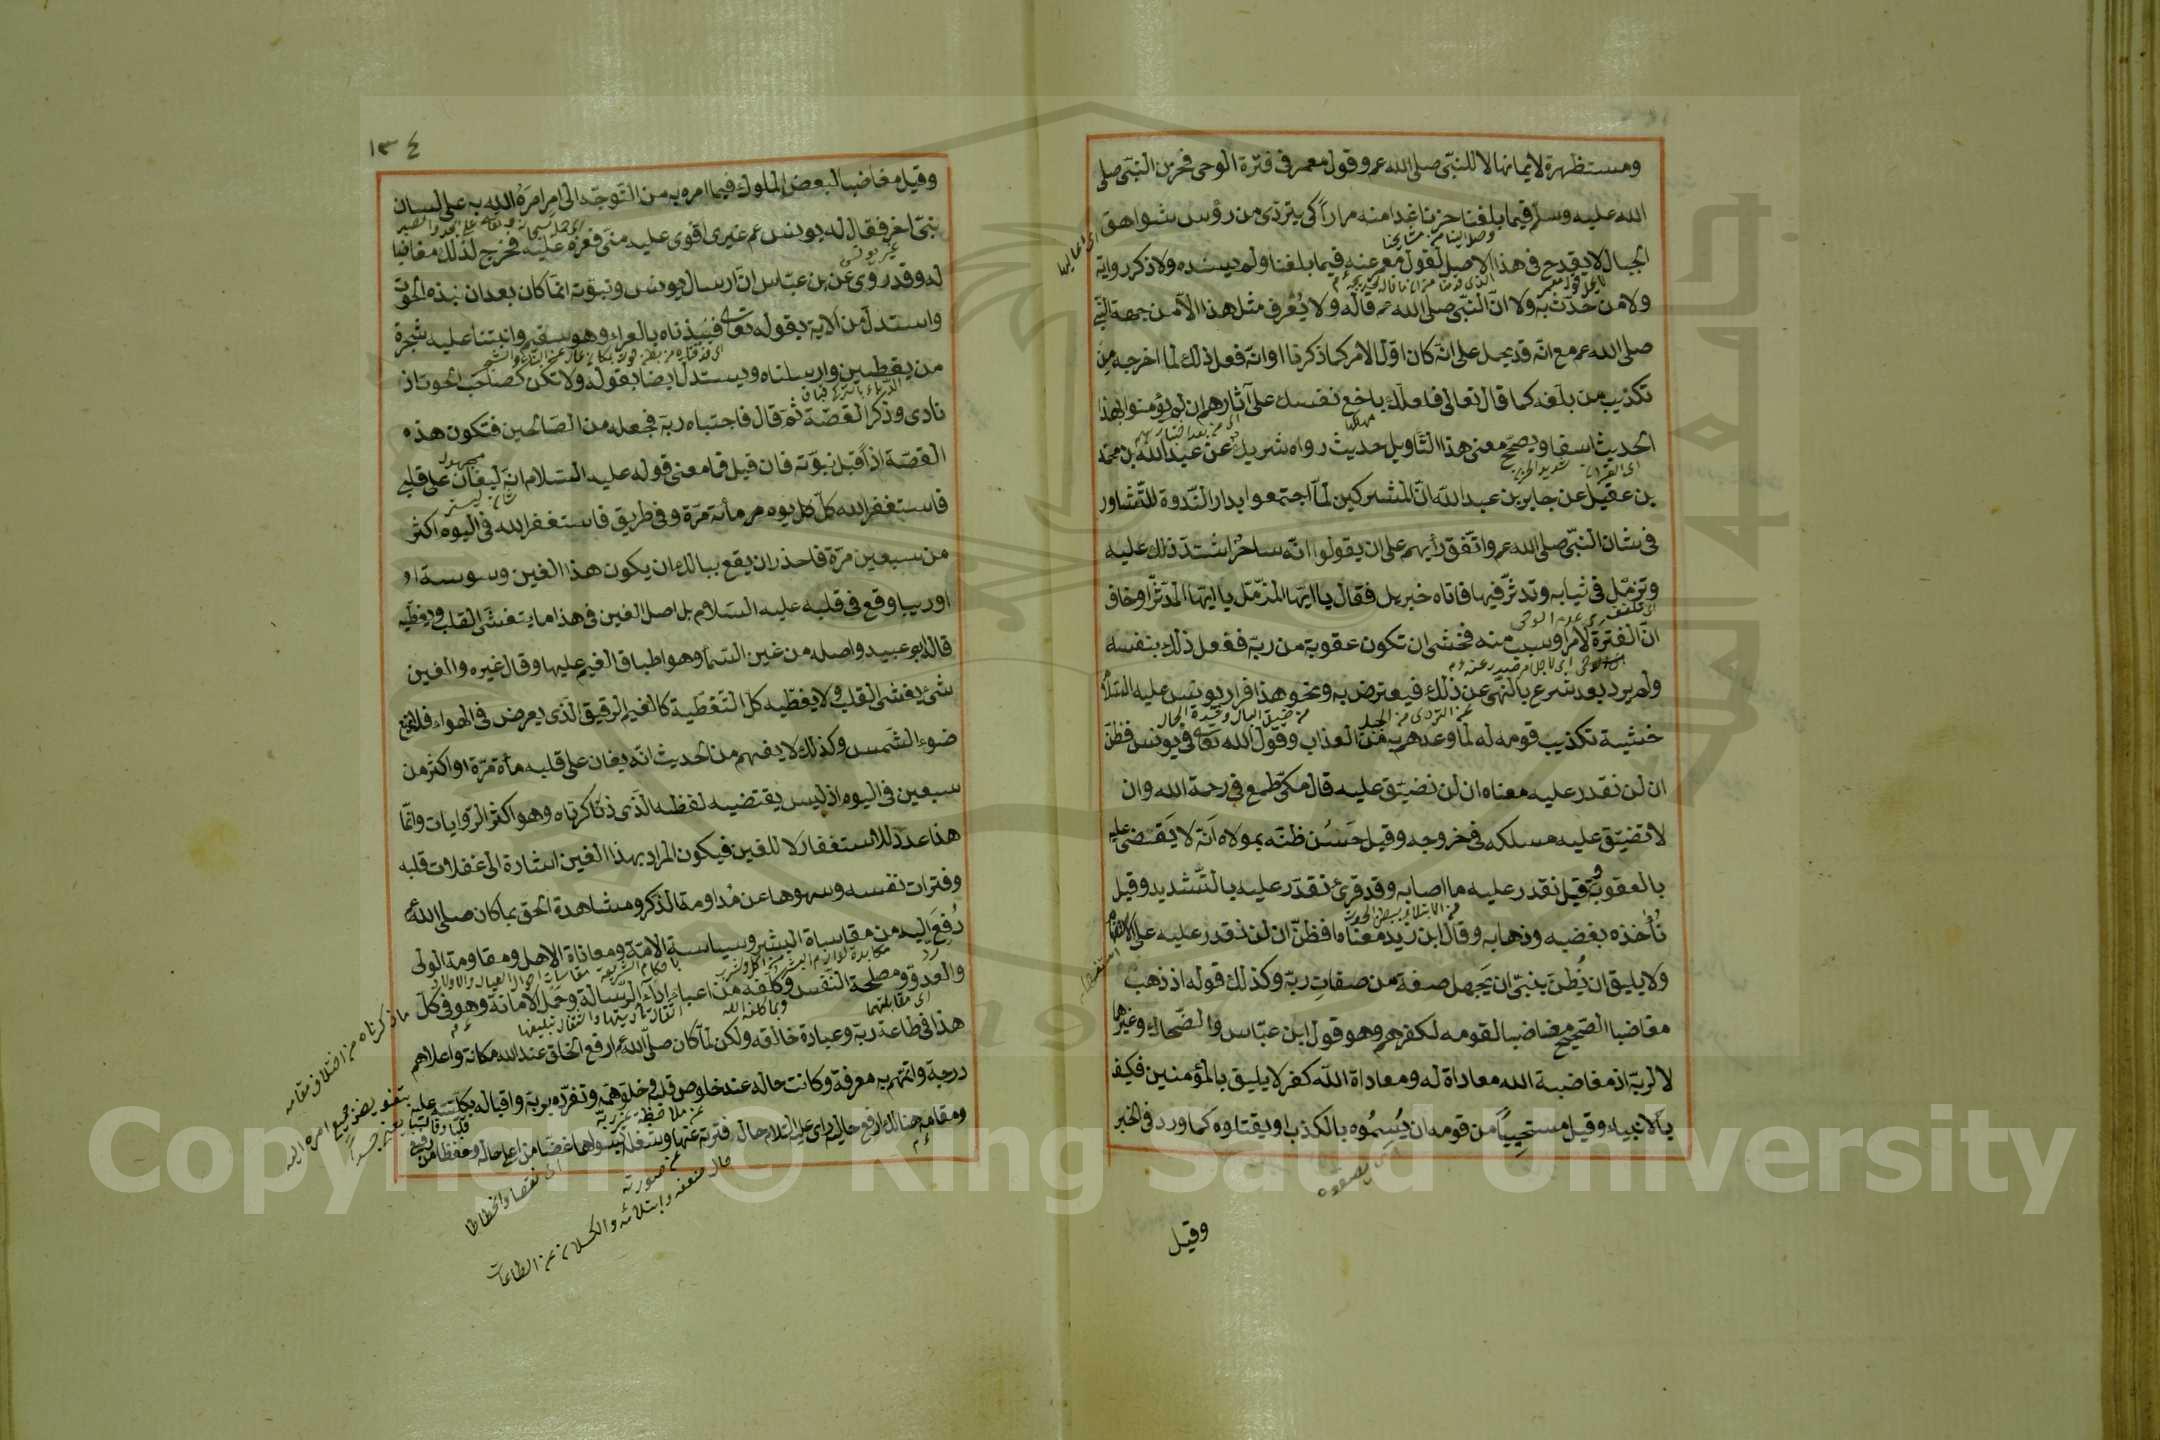 ومستظهرة لايمانها لا للنبّى صلى الله عم وقول معمر فى فترة الوحى فحزن النبّى صلى
الله عليه وسلم فيما بلغنا حزنا غدا منه مرارا كى يتردى من رؤس شواهق
الجبال لا يقدح فى هذا الاصل لقول معمر عنه فيما بلغنا ولم يسنده ولا ذكر رواية
ولا من حدّث به ولا انّ النبّى صلى الله عم قاله ولا يُعْرف مثل هذا الّا من جهة النبّى
صلى الله عم مع انّه قد يحمل على انّه كان اوّل الامر كما ذكرنا او انّه فعل ذلك لما اخرجه من
تكذيب من بلّغه كما قال تعالى فلعلك باخع نفسك على آثارهم ان لم يؤمنوا بهذا
الحديث اسفا ويصحّح معنى هذا التّأويل حديث رواه شريك عن عبد الله بن محمد
بن عقيل عن جابر بن عبد الله انّ المشركين لمّا اجتمعوا بدار النّدوة للتّشاور
فى شان النبّى صلى الله عم واتّفق رأيهم على ان يقولوا انّه ساحرٌ اشتدّ ذلك عليه
وتزمّل فى ثيابه وتدثّر فيها فاتاه جبريل فقال يا ايّها المزّمّل يا ايّها المدّثّر او خاف
انّ الفترة لامر او سبب منه فخشى ان تكون عقوبة من ربّه ففعل ذلك بنفسه
ولم يرد بعد شرع بالنّهى عن ذلك فيعترض به ونحو هذا فرار يونس عليه السّلام
خشية تكذيب قومه له لما وعدهم به من العذاب وقول الله تعالى فى يونس فظنّ
ان لن نقدر عليه معناه ان لن نضيّق عليه قال مكّى طمع فى رحمة الله وان
لا تضيّق عليه مسلكه فى خروجه وقيل حَسُن ظنّه بمولاه انّه لا يَقضى عليه
بالعقوبة وقيل نقدر عليه ما اصابه وقد قرئ نقدّر عليه بالتّشديد وقيل
نُؤاخذه بغضبه وذهابه وقال ابن زيد معناه افظنّ ان لن نقدر عليه على الاستفهام
ولا يليق ان يُظنّ بنبّى ان يَجهل صفة من صفات ربّه وكذلك قوله اذ ذهب
مغاضبا الصّحيح مغاضبا لقومه لكفرهم وهو قول ابن عبّاس والضّحاك وغيرهما
لا لربّه اذ مغاضبة الله معاداة له ومعاداة الله كفر لا يليق بالمؤمنين فكيف
بالانبياء وقيل مستحييًا من قومه ان يَسِمُوه بالكذب او يقتلوه كما ورد فى الخبر
وقيل
١٣٤
وقيل مغاضبا لبعض الملوك فيما امره به من التّوجّه الى امر امرَهُ الله به على لسان
نبّى اخر فقال له يونس عم غيرى اقوى عليه منى فعزم عليه فخرج لذلك مغاضبا
له وقد روى عن بن عبّاس انّ ارسال يونس ونبوّته انّما كان بعد ان نبذه الحوت
واستدلّ من الاية بقوله تعالى فنبذناه بالعراء وهو سقيم وانبتنا عليه شجرة
من يقطين وارسلناه ويستدلّ ايضا بقوله ولا تكن كصاحب الحوت اذ
نادى وذكر القصّة ثمّ قال فاجتباه ربّه فجعله من الصّالحين فتكون هذه
القصّة اذًا قبل نبوّته فان قيل فما معنى قوله عليه السّلام انّه ليغان على قلبى
فاستغفر الله كلّ يوم مأئة مرّة وفى طريق فاستغفر الله فى اليوم اكثر
من سبعين مرّة فاحذر ان يقع ببالك ان يكون هذا الغين وسوسة او
او ريبا وقع فى قلبه عليه السّلام بل اصل الغين فى هذا ما يتغشّى القلب ويغطّيه
قاله ابو عبيد واصله من غين السّماء وهو اطباق الغيم عليها وقال غيره والغين
شئ يغشى القلب ولا يغطّيه كلّ التّغطية كالغيم الرقيق الّذى يعرض فى الهواء فلا يمنع
ضوء الشّمس وكذلك لا يفهم من الحديث انّه يغان على قلبه مأة مرّة او اكثر من
سبعين فى اليوم اذ ليس يقتضيه لفظه الّذى ذكرناه وهو اكثر الرّوايات وانّما
هذا عدد للاستغفار لا للغين فيكون المراد بهذا الغين اشارة الى غفلات قلبه
وفترات نفسه وسهوها عن مُداومة الذكر ومشاهدة الحق بما كان صلى الله عم
رُفِعَ اليه من مقاساة البشر وسياسة الامّة ومعاناة الاهل ومقاومة الولى
والعدوّ ومصلحة النّفس وكُلّفه من اعباء اداء الرّسالة وحَمْل الامانة وهو فى كلّ
هذا فى طاعة ربّه وعبادة خالقه ولكن لمّا كان صلى الله عم ارفع الخلق عند الله مكانة واعلاهم
درجة واتمّهم به معرفة وكانت حاله عند خلوص قلبه وخلوّ همّه وتفرّده بربّه واقباله بكليّته عليه
ومقامه هنالك ارفع حاليه رأى عليه السّلام حال فترته عنها وشغله بسواها غضّا من على حاله وخفضا من رفيع
Copyright © King Saud University